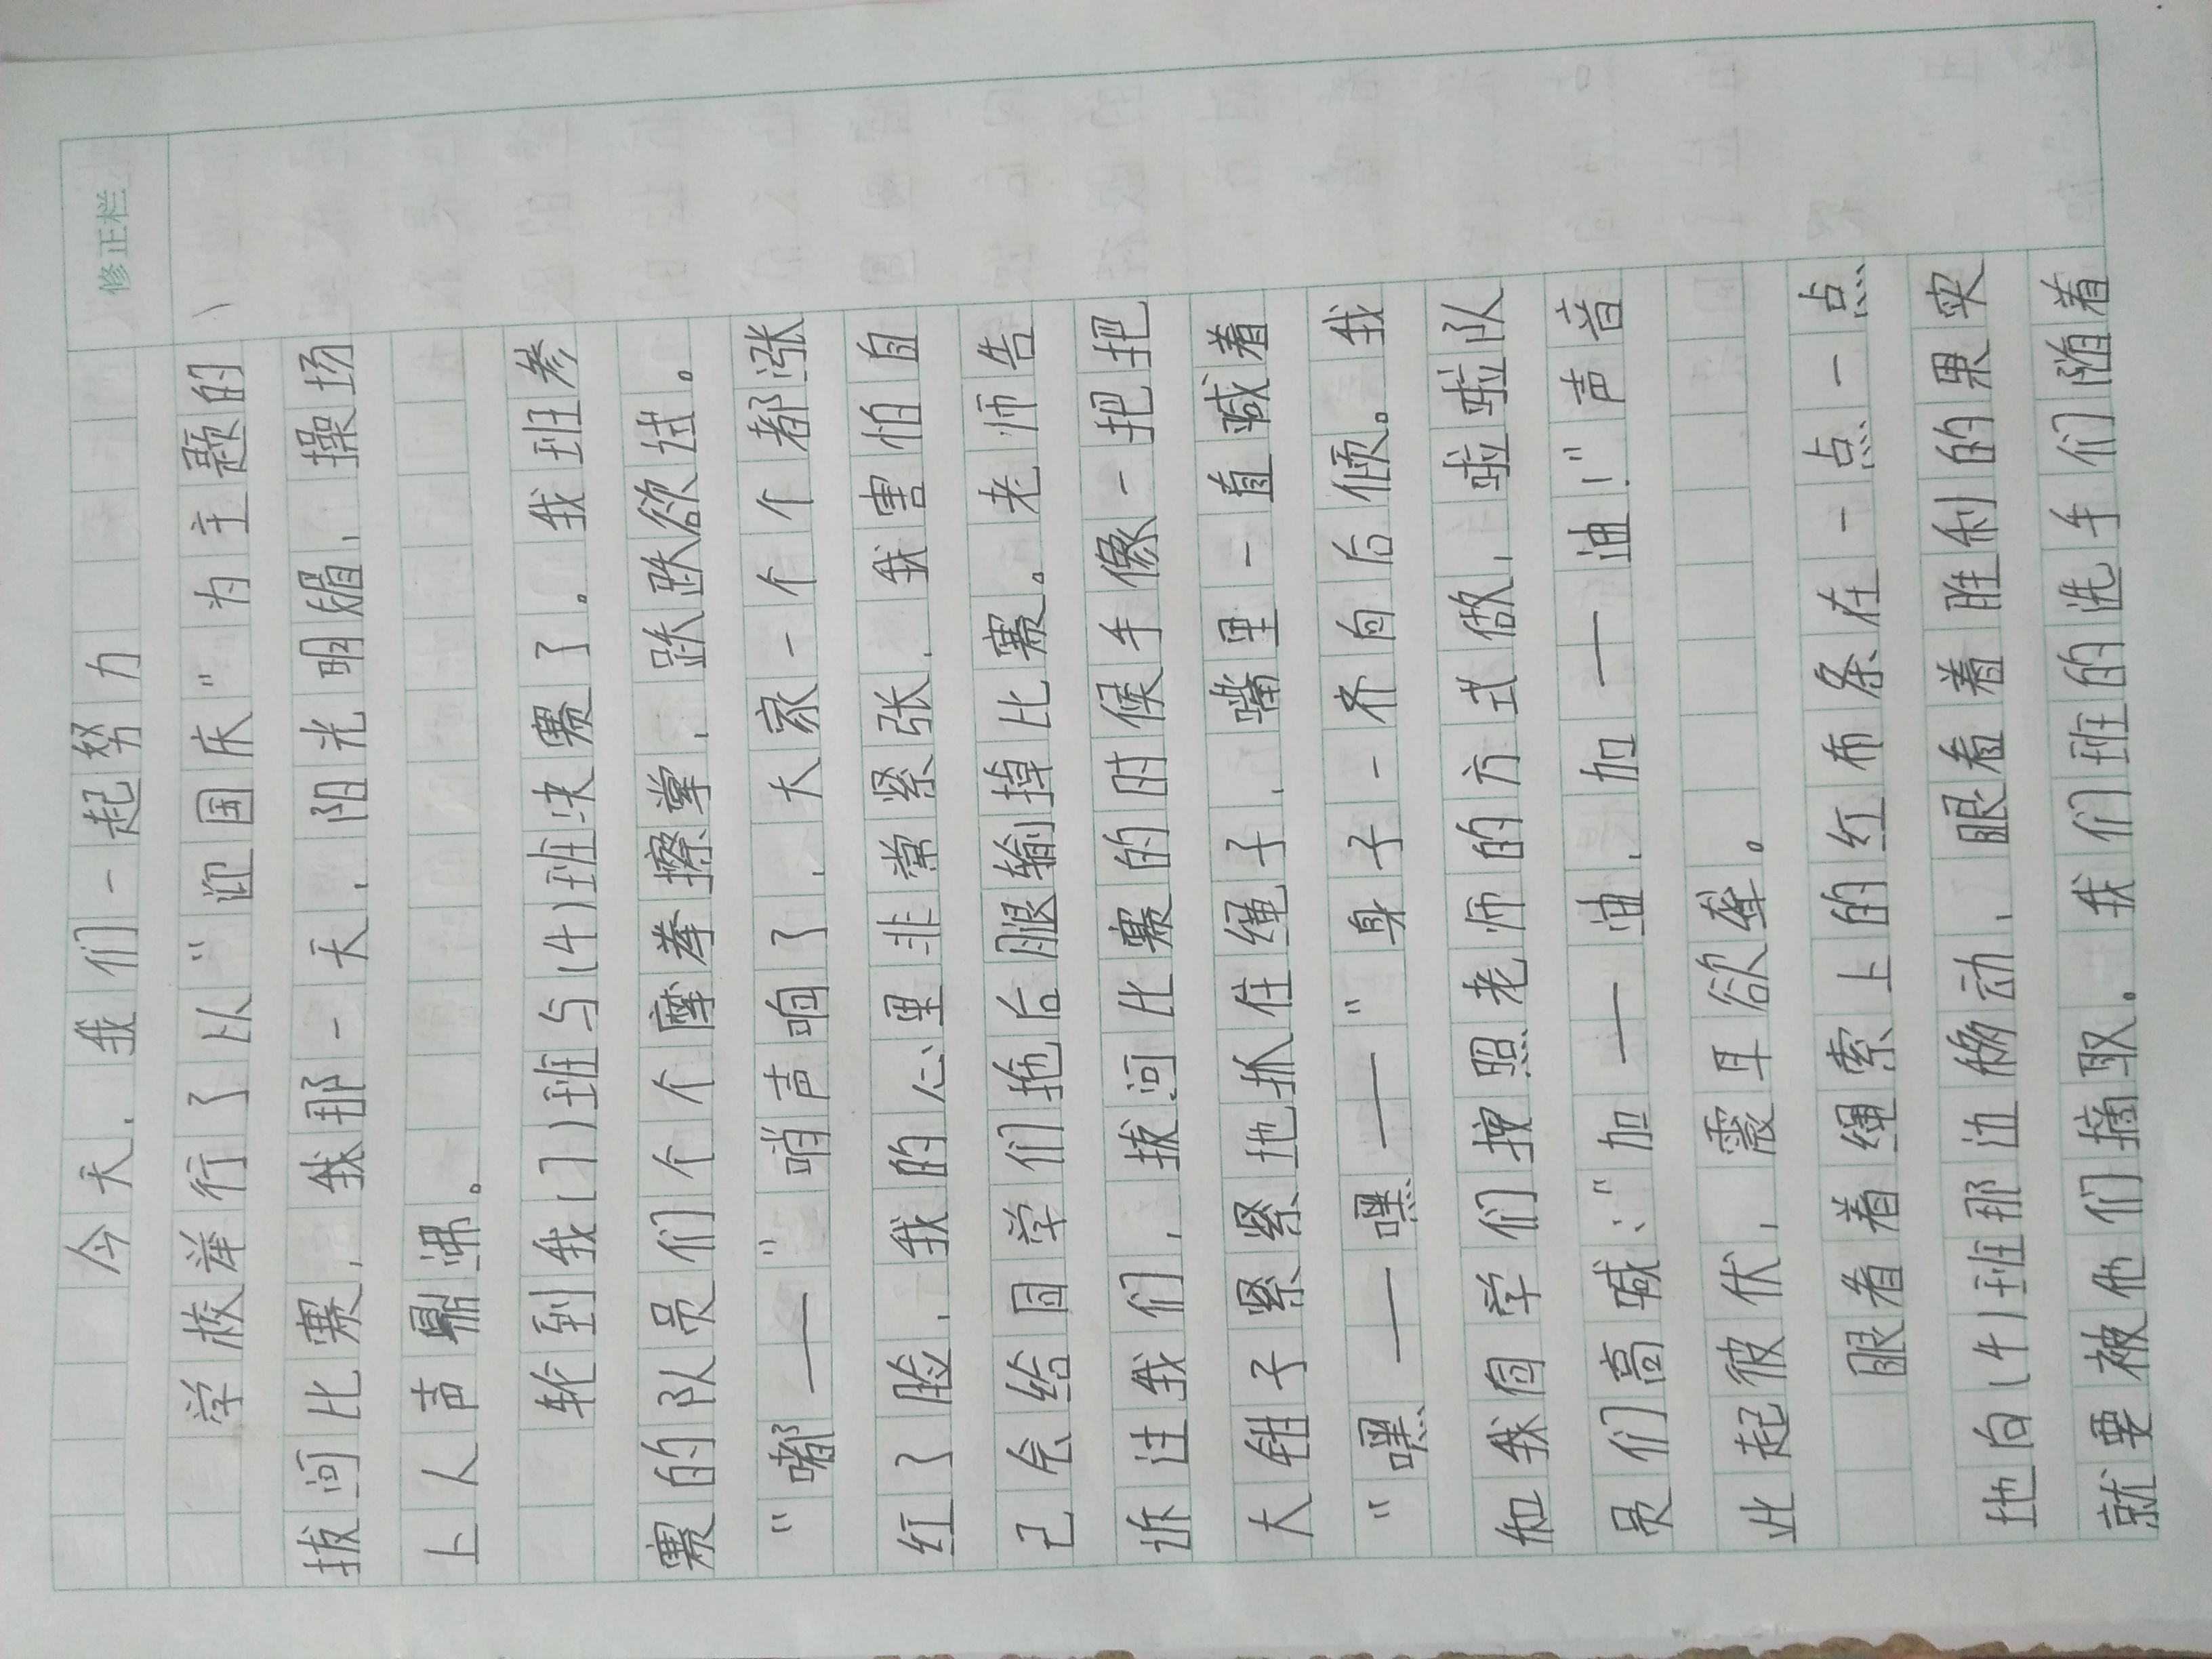 修正栏
今天，我们一起努力
学校举行了以“迎国庆”为主题的
拔河比赛，我那一天，阳光明媚，操场
上人声鼎沸。
轮到我(7)班与(4)班决赛了。我班参
赛的队员们个个摩拳擦掌，跃跃欲试。
“嘟——”哨声响了，大家一个个都涨
红了脸，我的心里非常紧张，我害怕自
己会给同学们拖后腿输掉比赛。老师告
诉过我们，拔河比赛的时候手像一把把
大钳子紧紧地抓住绳子，嘴里一直喊着
“嘿——嘿——”身子一齐向后倾。我
和我同学们按照老师的方式做，啦啦队
员们高喊：“加——油，加——油！”声音
此起彼伏，震耳欲聋。
眼看着绳索上的红布条在一点一点
地向(4)班那边移动，眼看着胜利的果实
就要被他们摘取。我们班的选手们随着